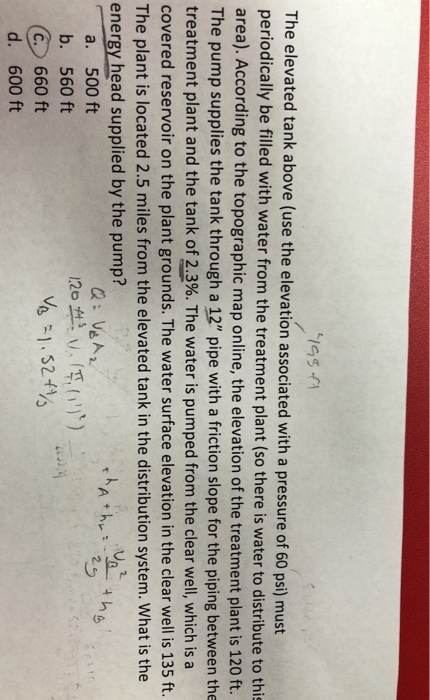 498 ft
The elevated tank above (use the elevation associated with a pressure of 60 psi) must
periodically be filled with water from the treatment plant (so there is water to distribute to this
area). According to the topographic map online, the elevation of the treatment plant is 120 ft.
The pump supplies the tank through a 12" pipe with a friction slope for the piping between the
treatment plant and the tank of 2.3%. The water is pumped from the clear well, which is a
covered reservoir on the plant grounds. The water surface elevation in the clear well is 135 ft.
The plant is located 2.5 miles from the elevated tank in the distribution system. What is the
energy head supplied by the pump?
a. 500 ft
b. 560 ft
c. 660 ft
d. 600 ft
Q = V_B A_2
V_B = 1.52 ft/s